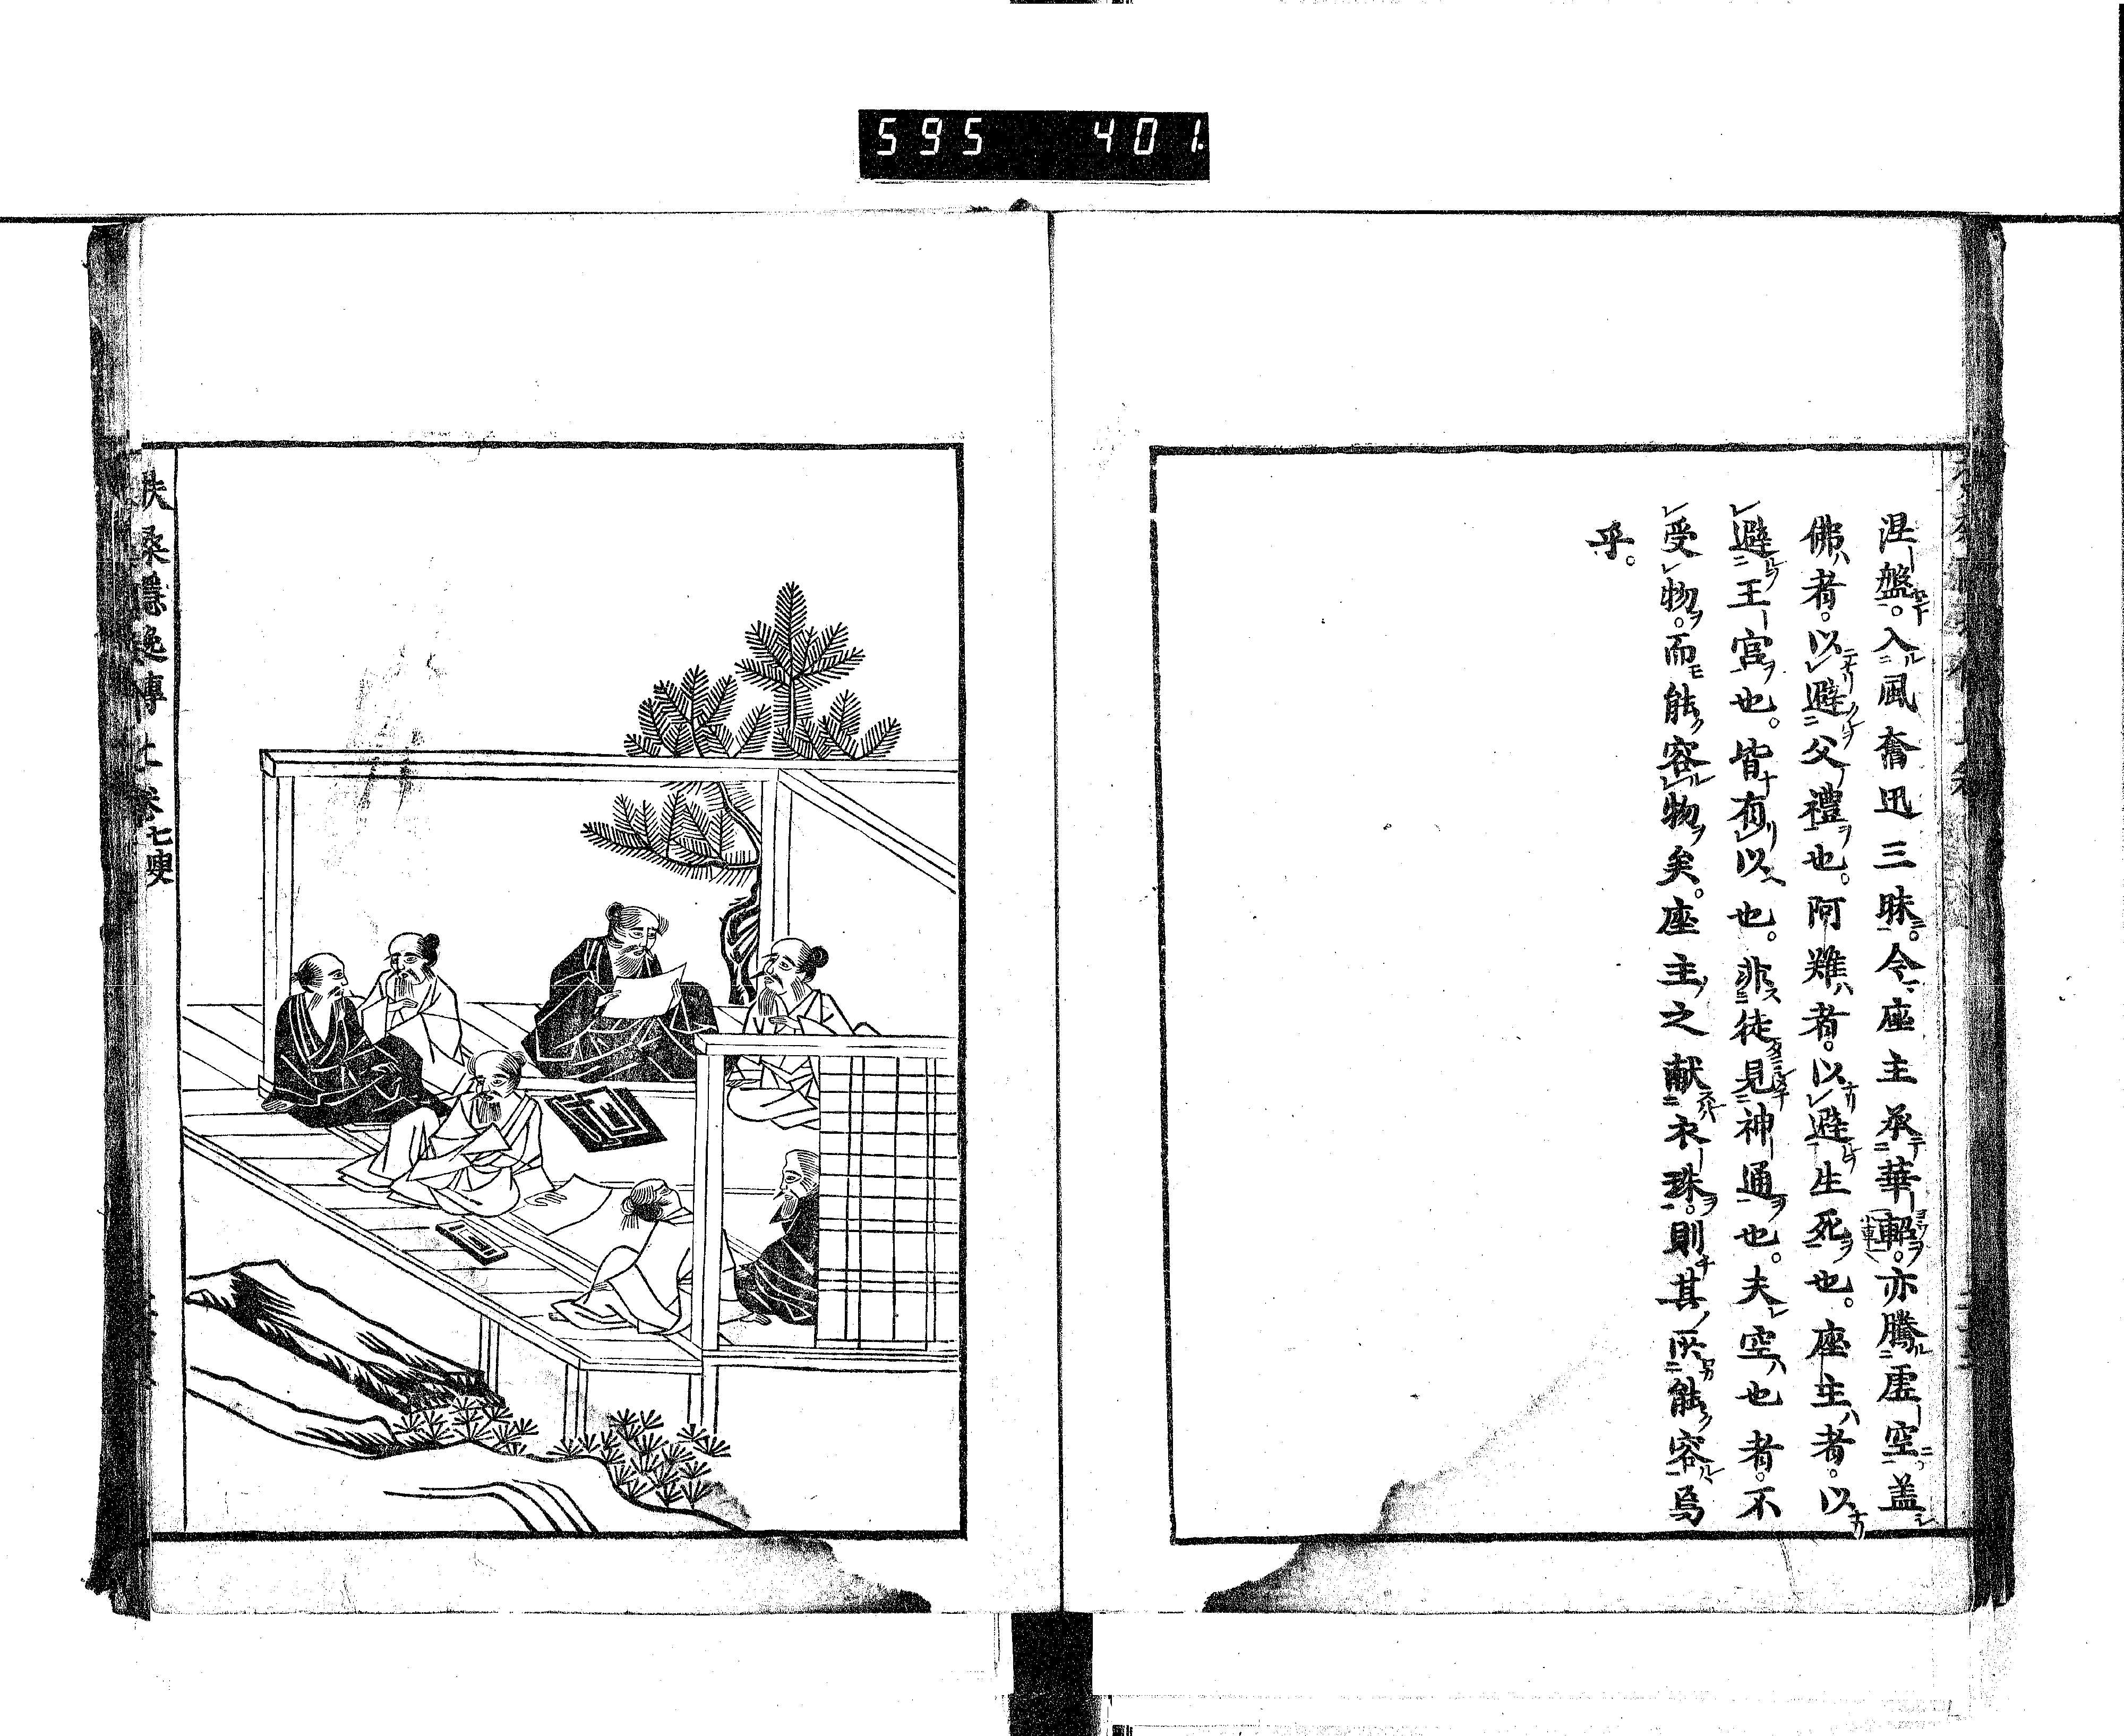 595 401
涅盤。入風奮迅三昧。今座主承華軺。亦騰虛空。盖
佛者。以避父禮也。阿難者。以避生死也。座主者。以
避王宮也。皆有以也。非徒見神通也。夫空也者。不
受物。而能容物矣。座主之献衣珠。則其所能容烏
乎。
扶桑隱逸傳 上卷 七叟